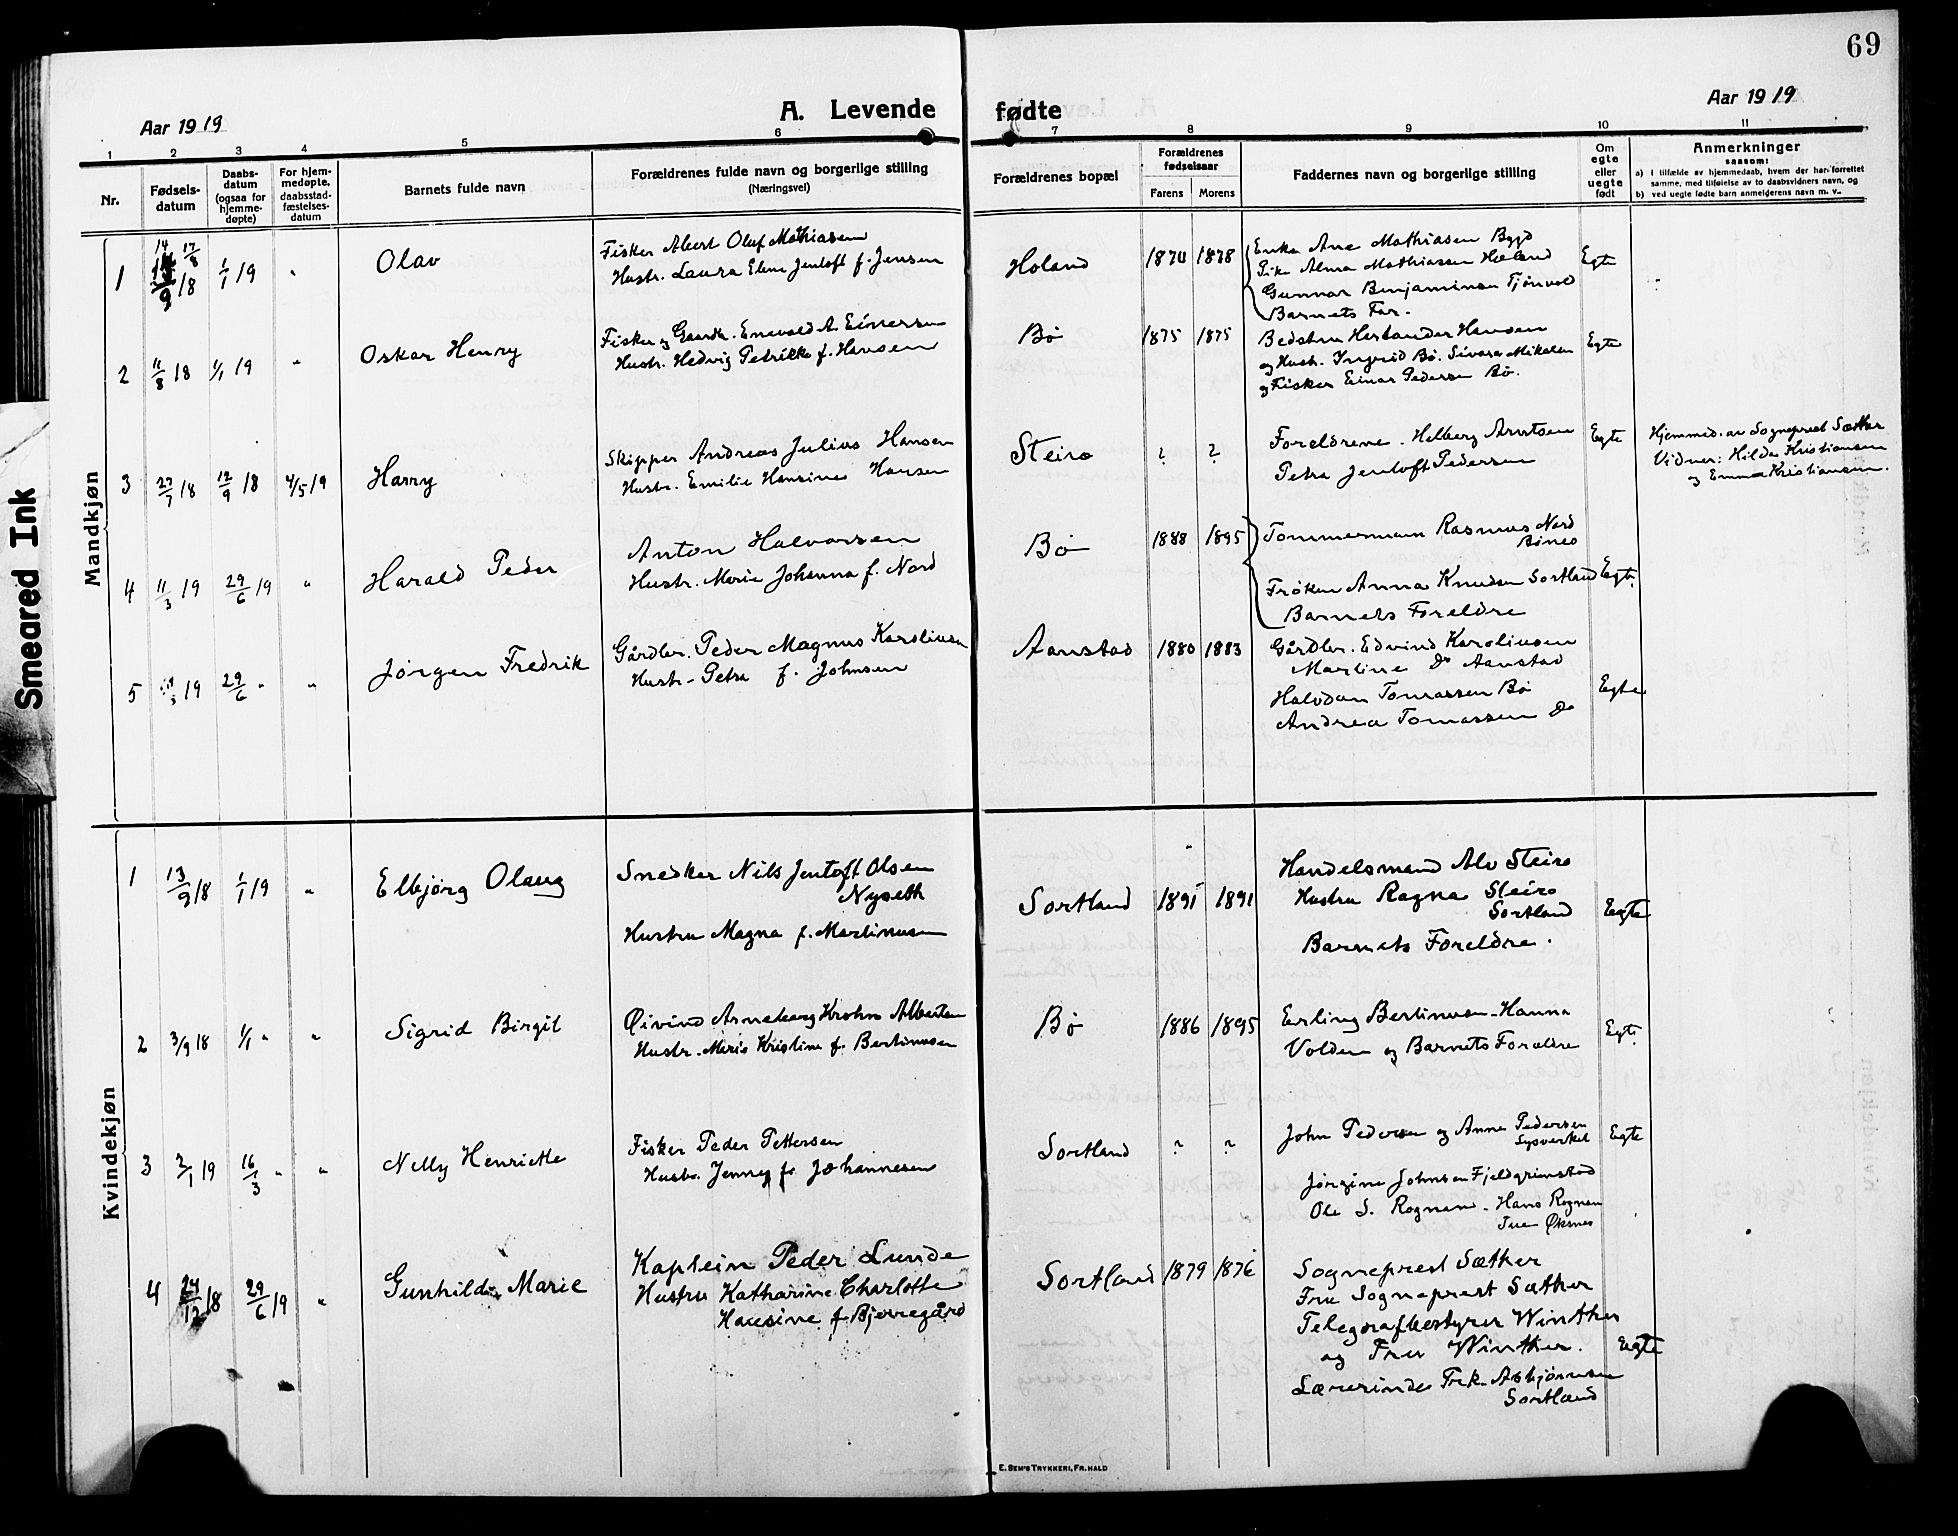 69
Aar 1919
A. Levende
fødte
Aar 1919
1 2 3 4 5 6 7 8 9 10 11
Nr.
Fødsels-
datum
Daabs-
datum
(ogsaa for
hjemme-
døpte)
For hjem-
medøpte,
daabsstad-
fæstelses-
datum
Barnets fulde navn
Forældrenes fulde navn og borgerlige stilling
(Næringsvei)
Forældrenes bopæl
Forældrenes
fødselsaar
Farens Morens
Faddernes navn og borgerlige stilling
Om
egte
eller
uegte
født
Anmerkninger
saasom:
a) I tilfælde av hjemmedaab, hvem der har forrettet
samme, med tilføielse av to daabsvidners navn, og
b) ved uegte fødte barn anmelderens navn m. v..
Smeared Ink
Mandkjøn
1 9/18 1/1 19 Olav
Fisker Albert Oluf Mathiasen
Hustr. Laura Eline Jentoft f. Jensen
Holand 1874 1878
Enke Ane Mathiasen Bygd
Pike Alma Mathiassen Holand
Gunnar Benjaminsen Tjønvold
Barnets Far.
Egte
2 11/8 18 1/1 19 " Oskar Henry
Fisker og Gaardr. Enevold A. Einersen
Hustr. Hedvig Petrikke f. Hansen
Bø 1875 1875
Hansen
og Hustr. Ingrid Bø. Mikalsen
og Fisker Einar Pedersen Bø.
Egte
3 27/7 18 12/9 18 4/5 19 Harry
Skipper Andreas Julius Hansen
Hustr. Emilie Hansine Hansen
Steiro ? ?
Foreldrene. Helberg Arntsen
Petra Jentoft Pedersen
Egte
Hjemmed. av Sogneprest Sæther
Vidner: Hilda Kristiansen
og Emma Kristiansen.
4 11/3 19 29/6 19 " Harald Peder
Anton Halvorsen
Hustr. Marie Johanna f. Nord
Bø 1888 1895
Tømmermann Rasmus Nord
Frøken Anna Knudsen Sortland
Barnets Foreldre
Egte
5 /3 19 29/6 " " Jørgen Fredrik
Gårdbr. Peder Magnus Karoliusen
Hustr. Petra f. Johnsen
Aanstad 1880 1883
Gårdbr. Edvind Karoliusen
Martine Do Aanstad
Halvdan Tomassen Bø
Andrea Tomassen Do
Egte
Kvindekjøn
1 13/9 18 1/1 19 " Elbjørg Olaug
Snedker Nils Jentoft Olsen
Nyseth
Hustru Magna f. Martinusen
Sortland 1891 1891
Handelsmand Alv Steiro
Hustru Ragna Steiro
Sortland
Barnets Foreldre.
Egte
2 3/9 18 1/1 " " Sigrid Birgit
Øivind Arneberg Krohn Albertsen
Hustr. Marie Kristine f. Bertinusen
Bø 1886 1895
Erling Bertinusen - Hanna
Volden og Barnets Forældre
Egte
3 2/1 19 16/3 " " Nelly Henriette
Fisker Peder Pettersen
Hustr. Jenney f. Johannesen
Sortland ? ?
John Pedersen og Anna Pedersen
Jørgine Johnsen Fjeldgrimstad
Ole S. Rognan - Hans Rognan
Øksnes
Egte
4 24/12 18 29/6 19 " Gunhild Marie
Kaptein Peder Lunde
Hustru Katharine Charlotte
Hansine f. Bjerregård
Sortland 1879 1876
Sogneprest Sæther
Fru Sogneprest Sæther
Telegrafbestyrer Winther
og Fru Winther.
Lærerinde Frk. Asbjørnsen
Sortland
Egte
E. SEM'S TRYKKERI, FR.HALD